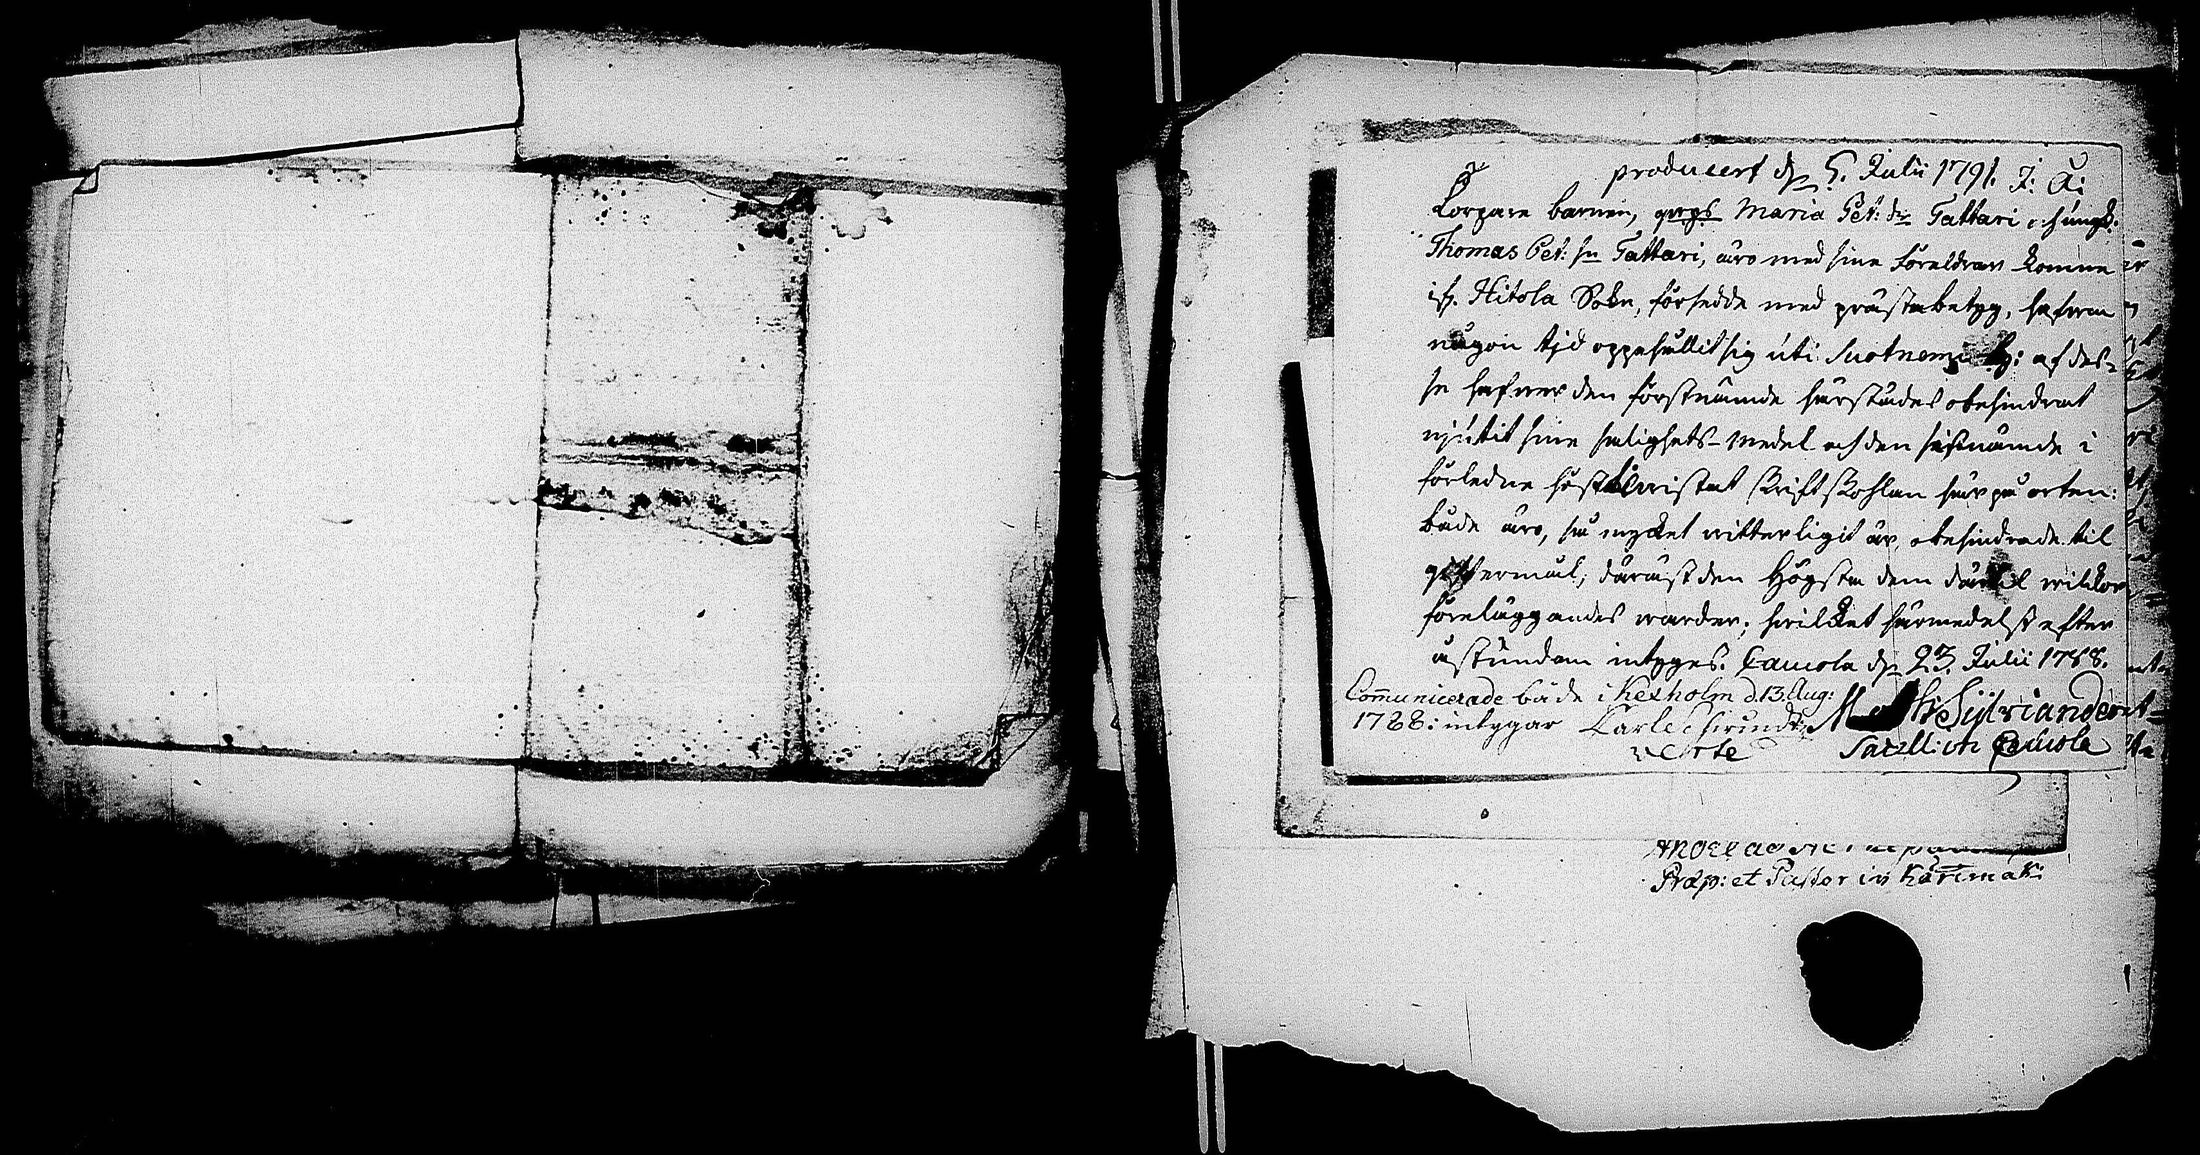 producert d. 5. Julii 1791. I: A:
Torpare barnen, qwps Maria Pet: dr Tattari och ungk:
Thomas Pet: sn Tattari, äro med sine Föreldrar komne
ifr. Hitola Sokn, försedde med prästebetyg, hafwa
någon tijd oppehållit sig uti Suotnemi By: af des-
se hafwer den förstnämde härstädes obehindrat
njutit sine salighets-medel och den sistnämde i
förledne höst bewistat Skriftskohlan här på orten:
både äro, så mycket witterligit är, obehindrade til
gifftermål, däräst den Högsta dem därtil wilkor
föreläggandes warder; hwilket härmedelst efter
åstundan intyges. Cauvola d. 23. Julii 1788.
Comunicerade både i Kexholm d. 13. Aug:
1788: intygar Carl
Matth: Sylviander
Sacell: in Cauvola
Præp: et Pastor in Kärimäki